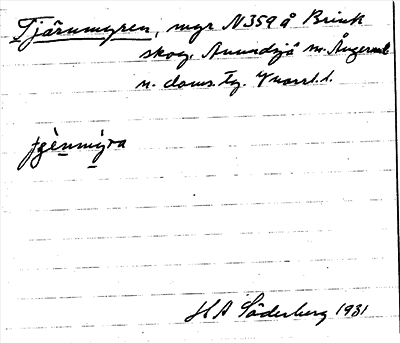 Tjärnmyren, myr N359 å Brink
skog. Anundsjö sn. Ångerml
n. doms. Tg. Vnorrl. l.
fgènmỳra
H A Söderberg 1931